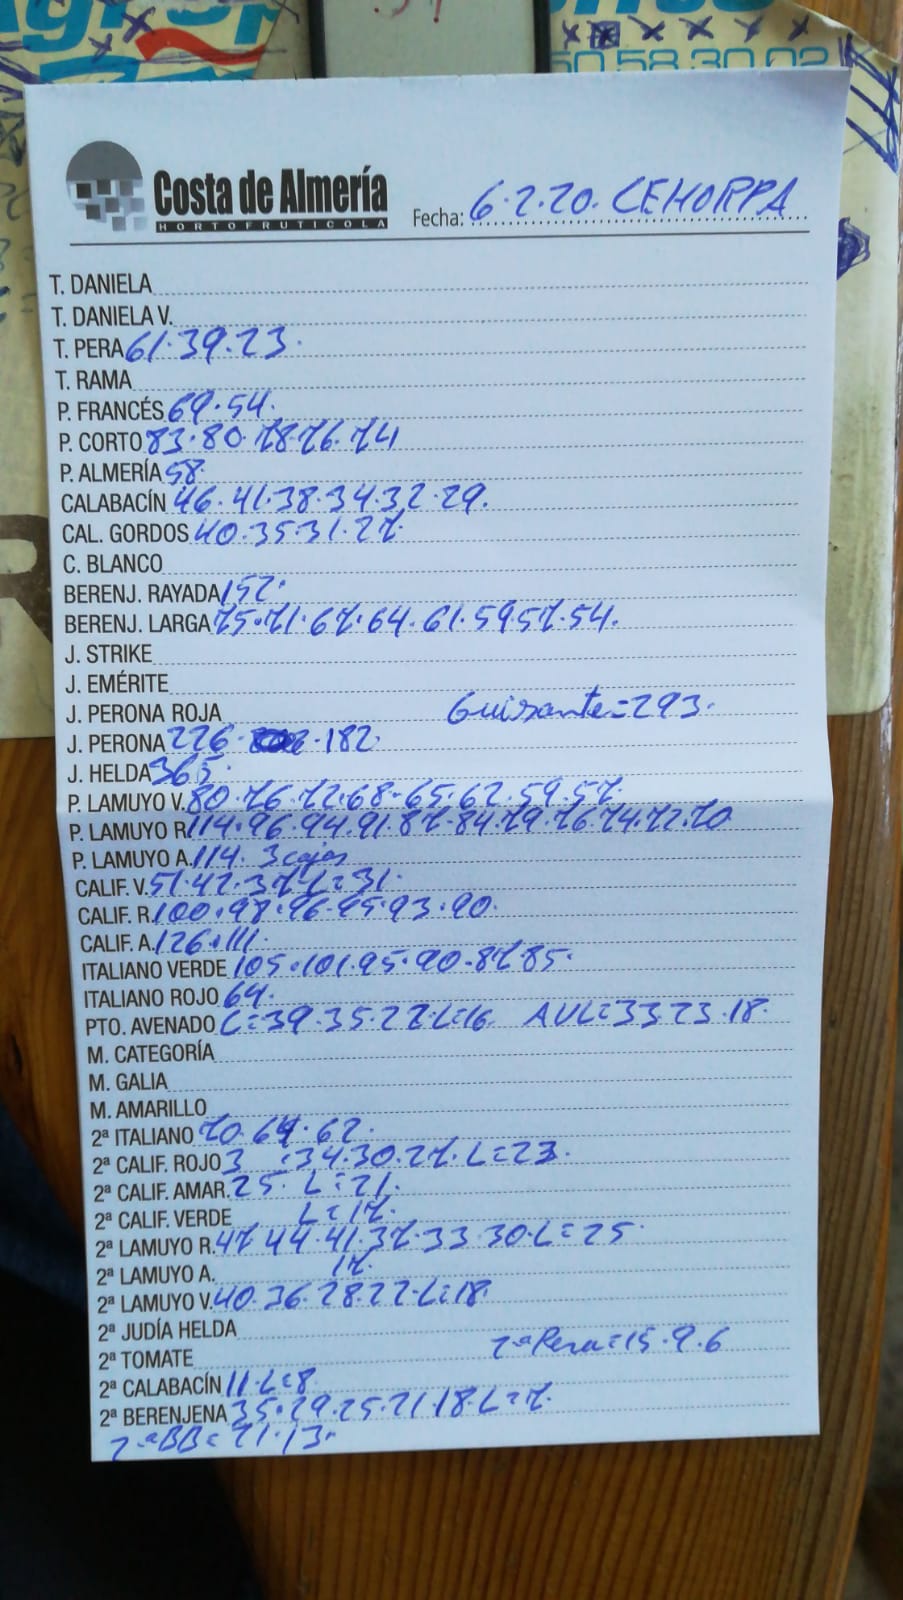 50.58.30.02
Costa de Almería
HORTOFRUTICOLA
Fecha: 6.2.20. CEHORPA
T. DANIELA
T. DANIELA V.
T. PERA 61.39.23.
T. RAMA
P. FRANCÉS 69.54.
P. CORTO 83.80.78.76.74
P. ALMERÍA 58.
CALABACÍN 46.41.38.34.32.29.
CAL. GORDOS 40.35.31.27.
C. BLANCO
BERENJ. RAYADA 152.
BERENJ. LARGA 75.71.67.64.61.59.57.54.
J. STRIKE
J. EMÉRITE
J. PERONA ROJA Guisante=293.
J. PERONA 226. .182.
J. HELDA 365.
P. LAMUYO V. 80.76.72.68.65.62.59.57.
P. LAMUYO R. 114.96.94.91.87.84.79.76.74.72.70
P. LAMUYO A. 114. 3 cajas
CALIF. V. 51.42.37.L=31.
CALIF. R. 100.98.96.95.93.90.
CALIF. A. 126.111.
ITALIANO VERDE 105.101.95.90.87.85.
ITALIANO ROJO 64.
PTO. AVENADO L=39.35.22.L=16. AVL=33.23.18.
M. CATEGORÍA
M. GALIA
M. AMARILLO
2ª ITALIANO 70.64.62.
2ª CALIF. ROJO 3 :34.30.27.L=23.
2ª CALIF. AMAR. 25. L=21.
2ª CALIF. VERDE L=17.
2ª LAMUYO R. 47.44.41.37.33.30.L=25.
2ª LAMUYO A. 17.
2ª LAMUYO V. 40.36.28.22.L=18.
2ª JUDÍA HELDA
2ª TOMATE 2ª Pera=15.9.6
2ª CALABACÍN 11.L=8
2ª BERENJENA 35.29.25.21.18.L=7.
2ªBB=21.13.